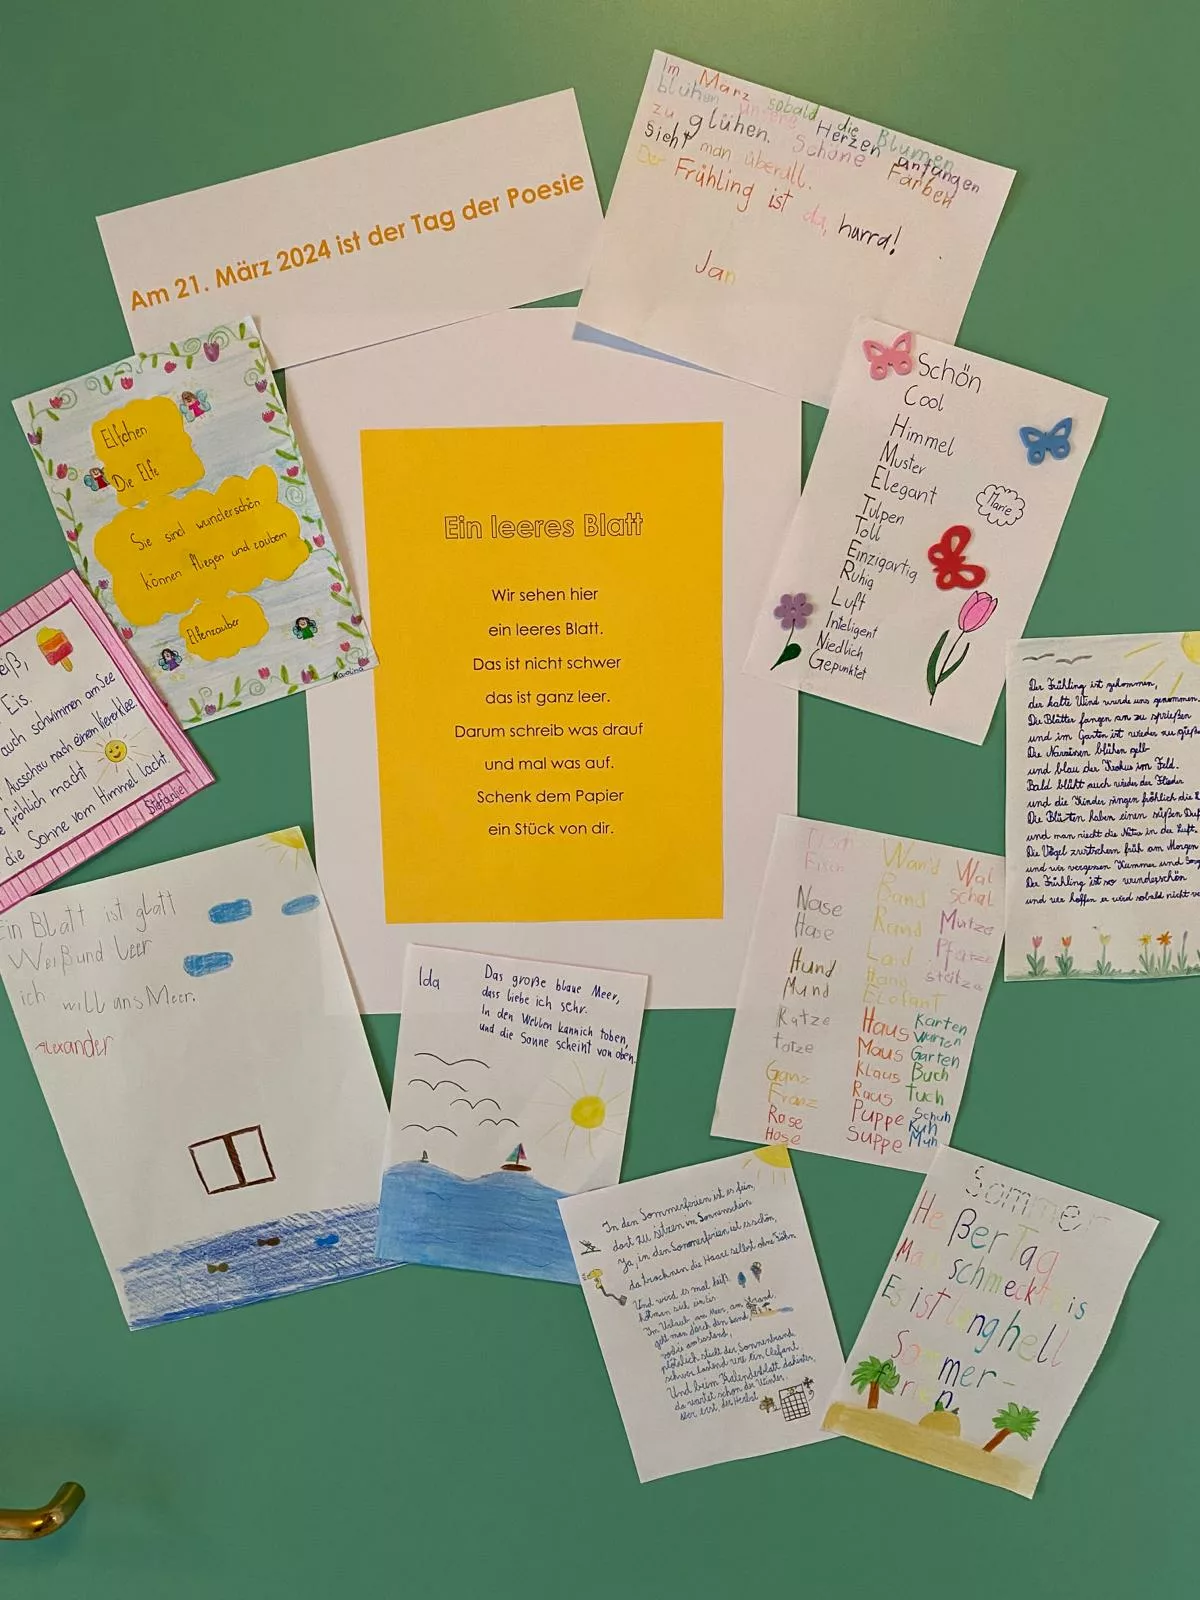 Am 21. März 2024 ist der Tag der Poesie
Im März sobald die Blumen
blühen unsere Herzen anfangen
zu glühen. Schöne Farben
sieht man überall.
Der Frühling ist da, hurra!
Jan
Elfchen
Die Elfe
Sie sind wunderschön
können fliegen und zaubern
Elfenzauber
Karolina
Ein leeres Blatt
Wir sehen hier
ein leeres Blatt.
Das ist nicht schwer
das ist ganz leer.
Darum schreib was drauf
und mal was auf.
Schenk dem Papier
ein Stück von dir.
Schön
Cool
Himmel
Muster
Elegant
Tulpen
Toll
Einzigartig
Ruhig
Luft
Inteligent
Niedlich
Gepunktet
Marie
eiß,
Eis.
auch schwimmen am See
Ausschau nach einem Viererklee.
fröhlich macht
die Sonne vom Himmel lacht.
Der Frühling ist gekommen,
der kalte Wind wurde uns genommen.
Die Blätter fangen an zu sprießen
und im Garten ist wieder zu gieße
Die Narzissen blühen gelb
und blau der Krokus im Feld.
Bald blüht auch wieder der Flieder
und die Kinder singen fröhlich die
Die Blüten haben einen süßen Duf
und man riecht die Natur in der Luft.
Die Vögel zwitschern früh am Morgen
und wir vergessen Kummer und Sorg
Der Frühling ist so wunderschön
und wir hoffen er wird sobald nicht ve
Ein Blatt ist glatt
Weiß und leer
ich will ans Meer.
Alexander
Ida
Das große blaue Meer,
dass liebe ich sehr.
In den Wellen kann ich toben,
und die Sonne scheint von oben.
Nase
Hase
Hund
Mund
Katze
Tatze
Ganz
Franz
Rose
Hose
Wand
Band
Rand
Land
Hand
Elefant
Haus
Maus
Klaus
Raus
Puppe
Suppe
Wal
Schal
Mütze
Pfütze
stütze
Karten
Warten
Garten
Buch
Tuch
Schuh
Kuh
Muh
In den Sommerferien ist es fein,
dort zu sitzen im Sonnenschein
Ja, in den Sommerferien ist es schön,
da trocknen die Haare selbst ohne Föhn
Und wird es mal heiß
holt man sich ein Eis.
Im Urlaub, am Meer, am Strand,
geht man durch den Sand,
plötzlich sticht der Sonnenbrand
schwer lastend wie ein Elefant.
Und beim Kalenderblatt dahinter,
da wartet schon der Winter.
aber erst, der Herbst
Sommer
Heißer Tag
Man schmeckt Eis
Es ist lang hell
Sommer-
ferien